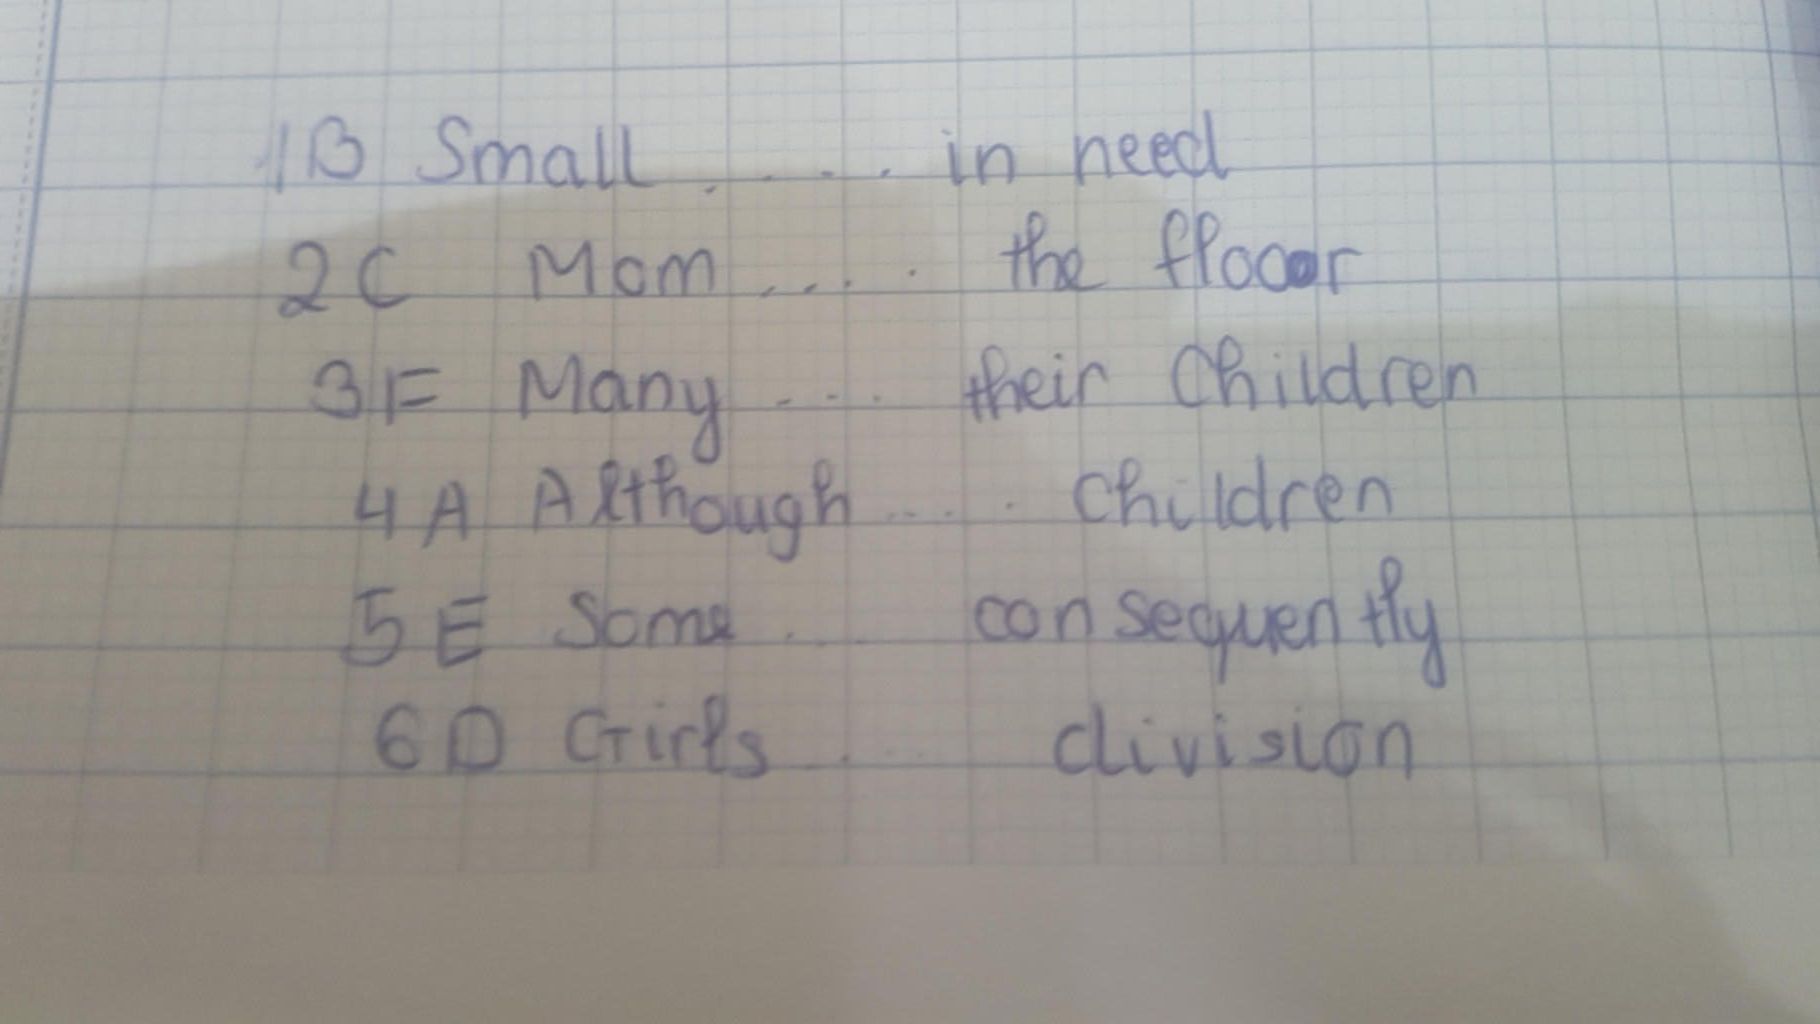 1B Small .... in need
2C Mom .... the flooor
3F Many .... their Children
4A Although .... children
5E Some .... consequently
6D Girls .... division